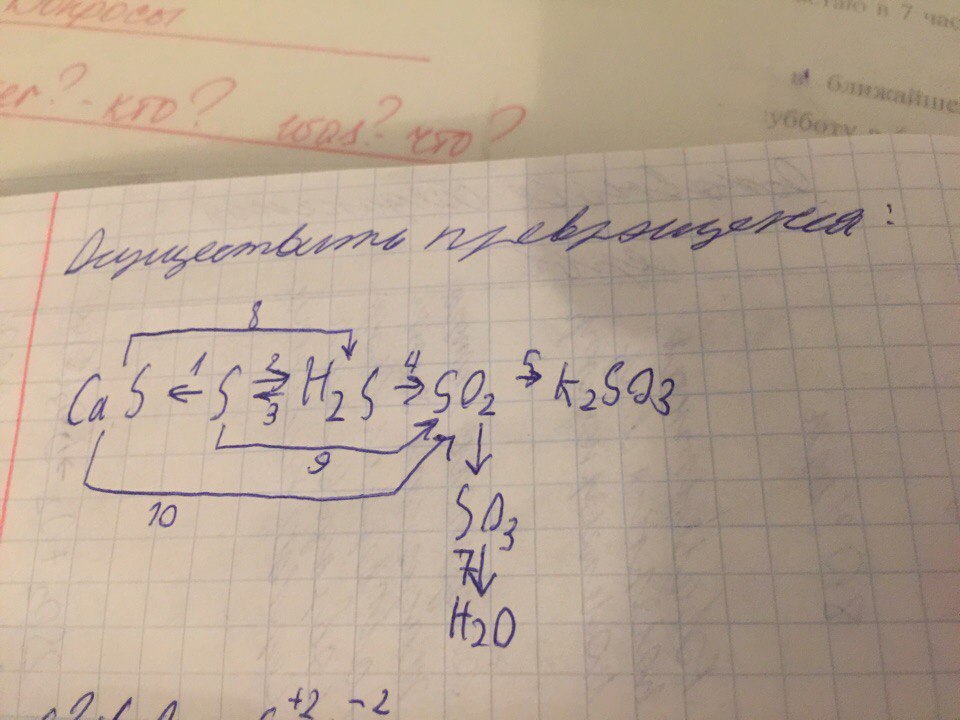 Вопросы
таю в 7 час
кто? что?
в ближайше
субботу в
Осуществить превращения:
8
CaS ←1 S ⇄ 2 3 H2S →4 SO2 →5 K2SO3
9
10
↓
SO3
7↓
H2O
+2 -2